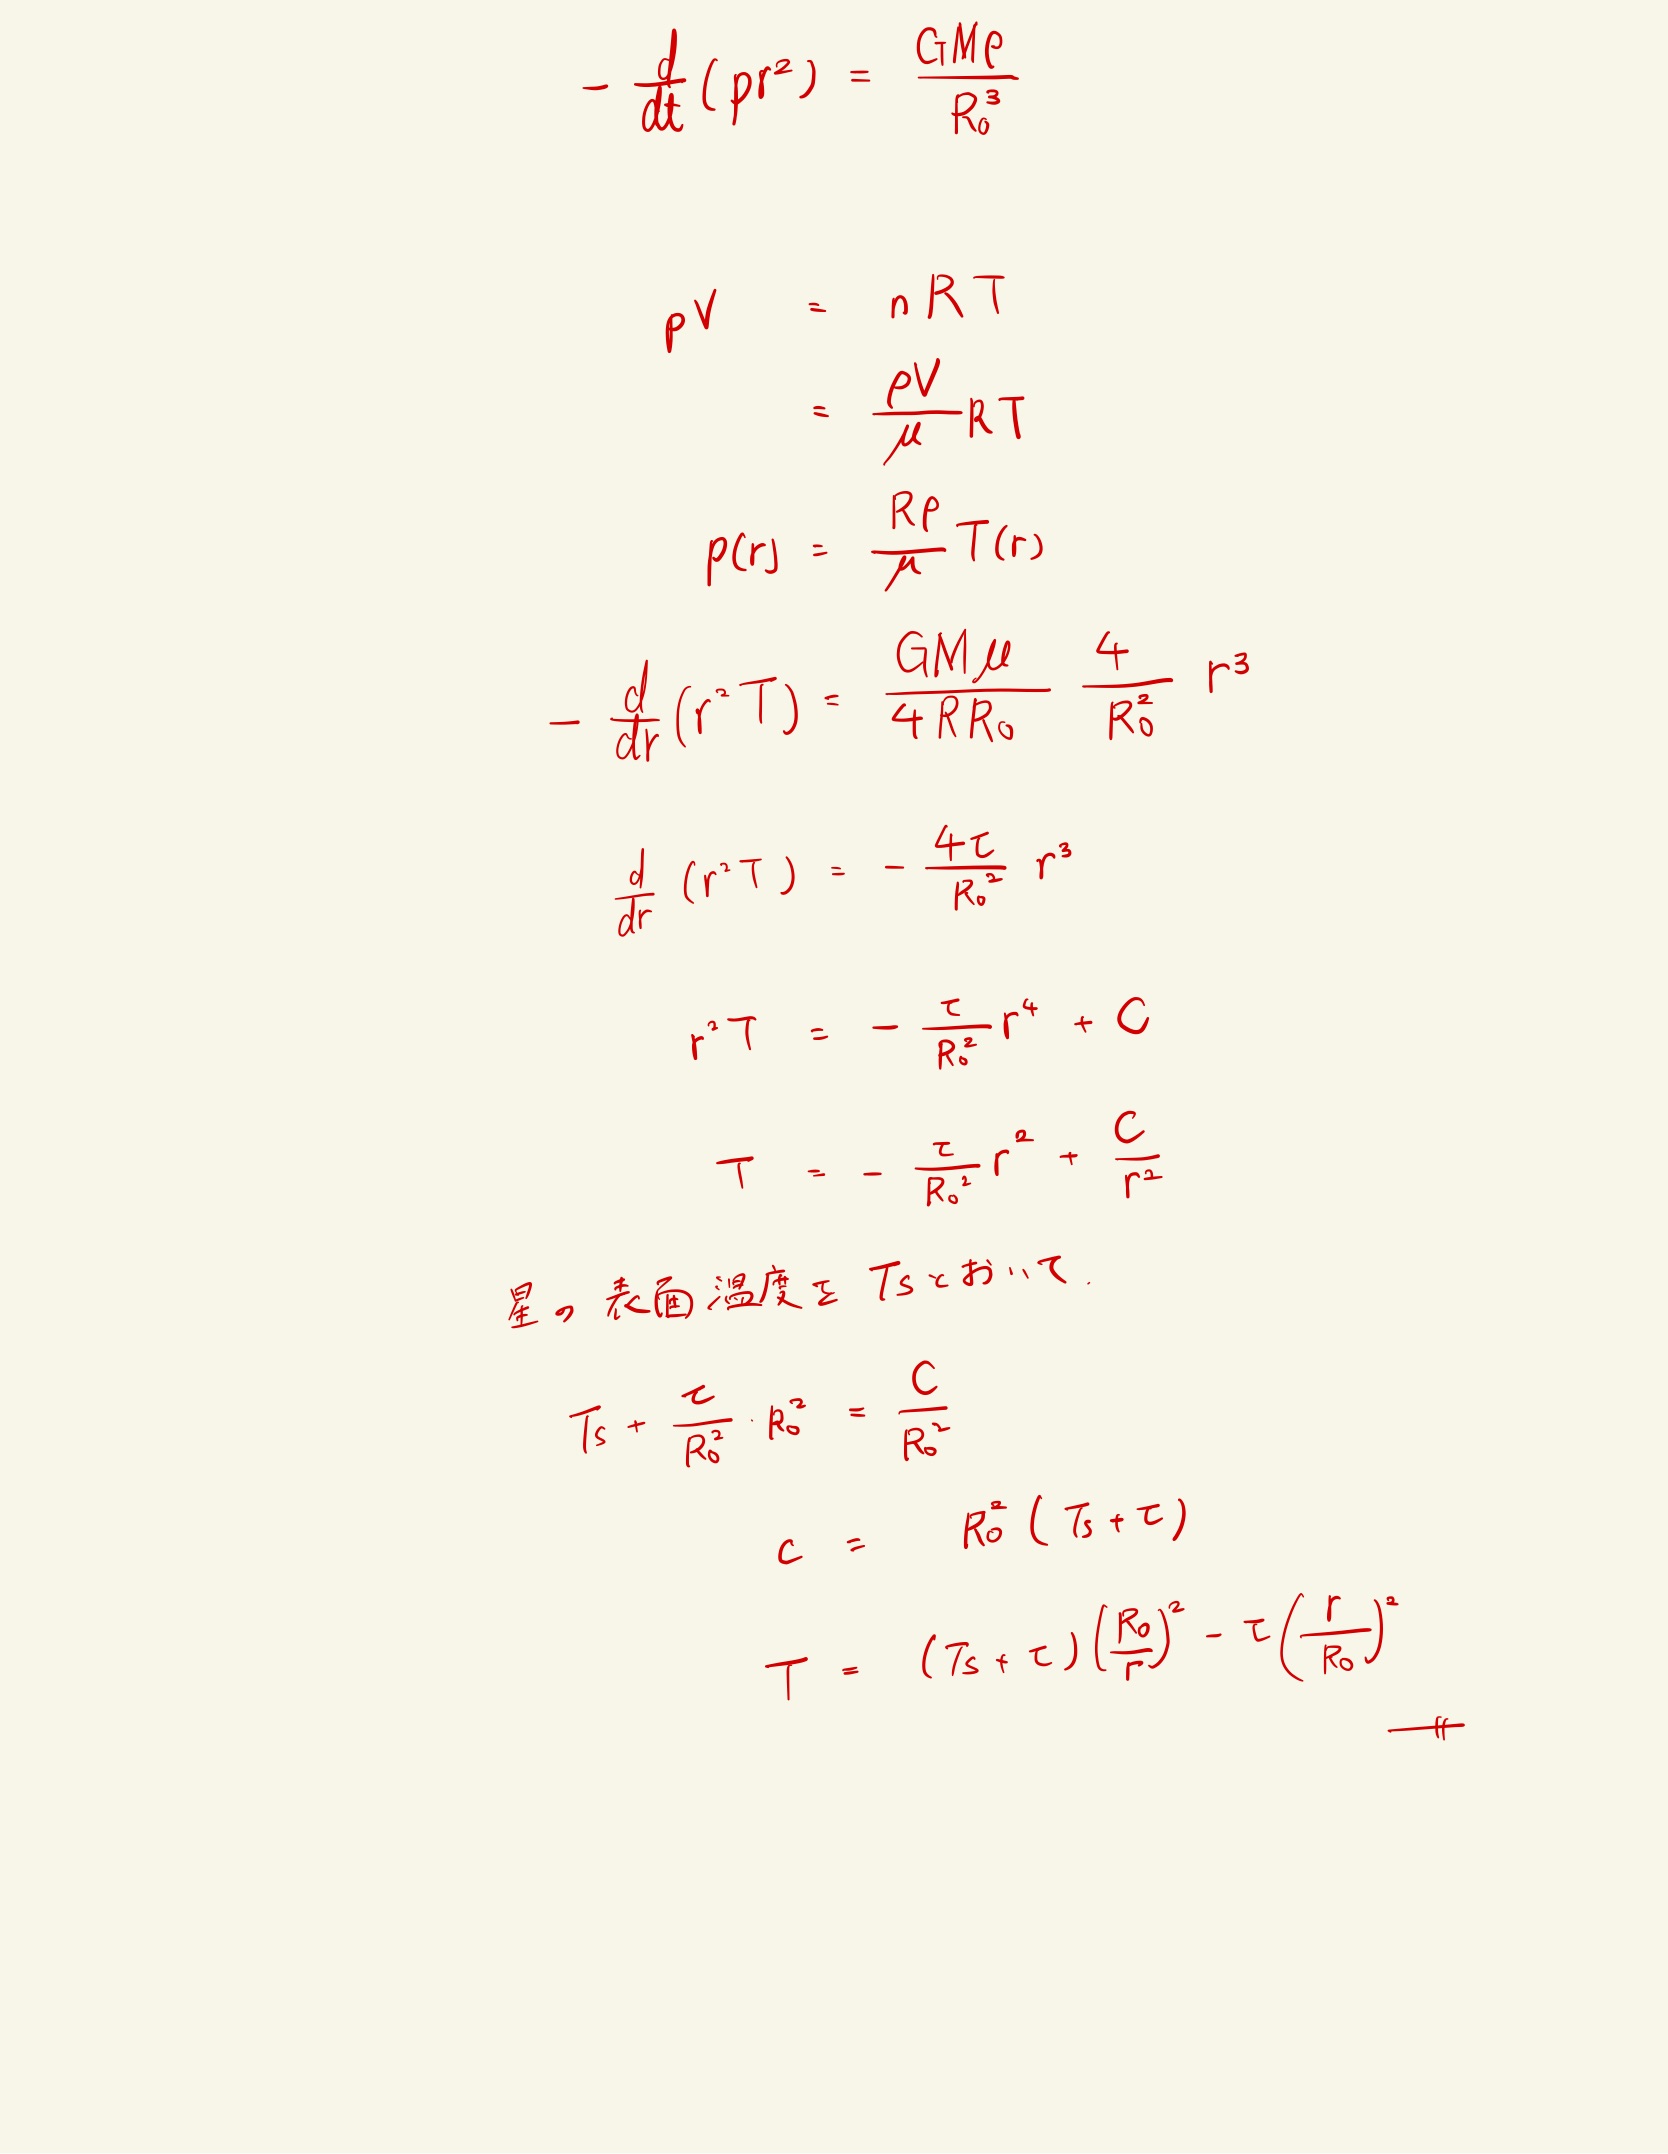 - d/dt (pr²) = GMρ/R₀³
pV = nRT
= ρV/μ RT
p(r) = Rρ/μ T(r)
- d/dr (r²T) = GMμ/4RR₀ 4/R₀² r³
d/dr (r²T) = - 4τ/R₀² r³
r²T = - τ/R₀² r⁴ + C
T = - τ/R₀² r² + C/r²
星の表面温度を Tsとおいて.
Ts + τ/R₀² · R₀² = C/R₀²
c = R₀² (Ts + τ)
T = (Ts + τ)(R₀/r)² - τ(r/R₀)²